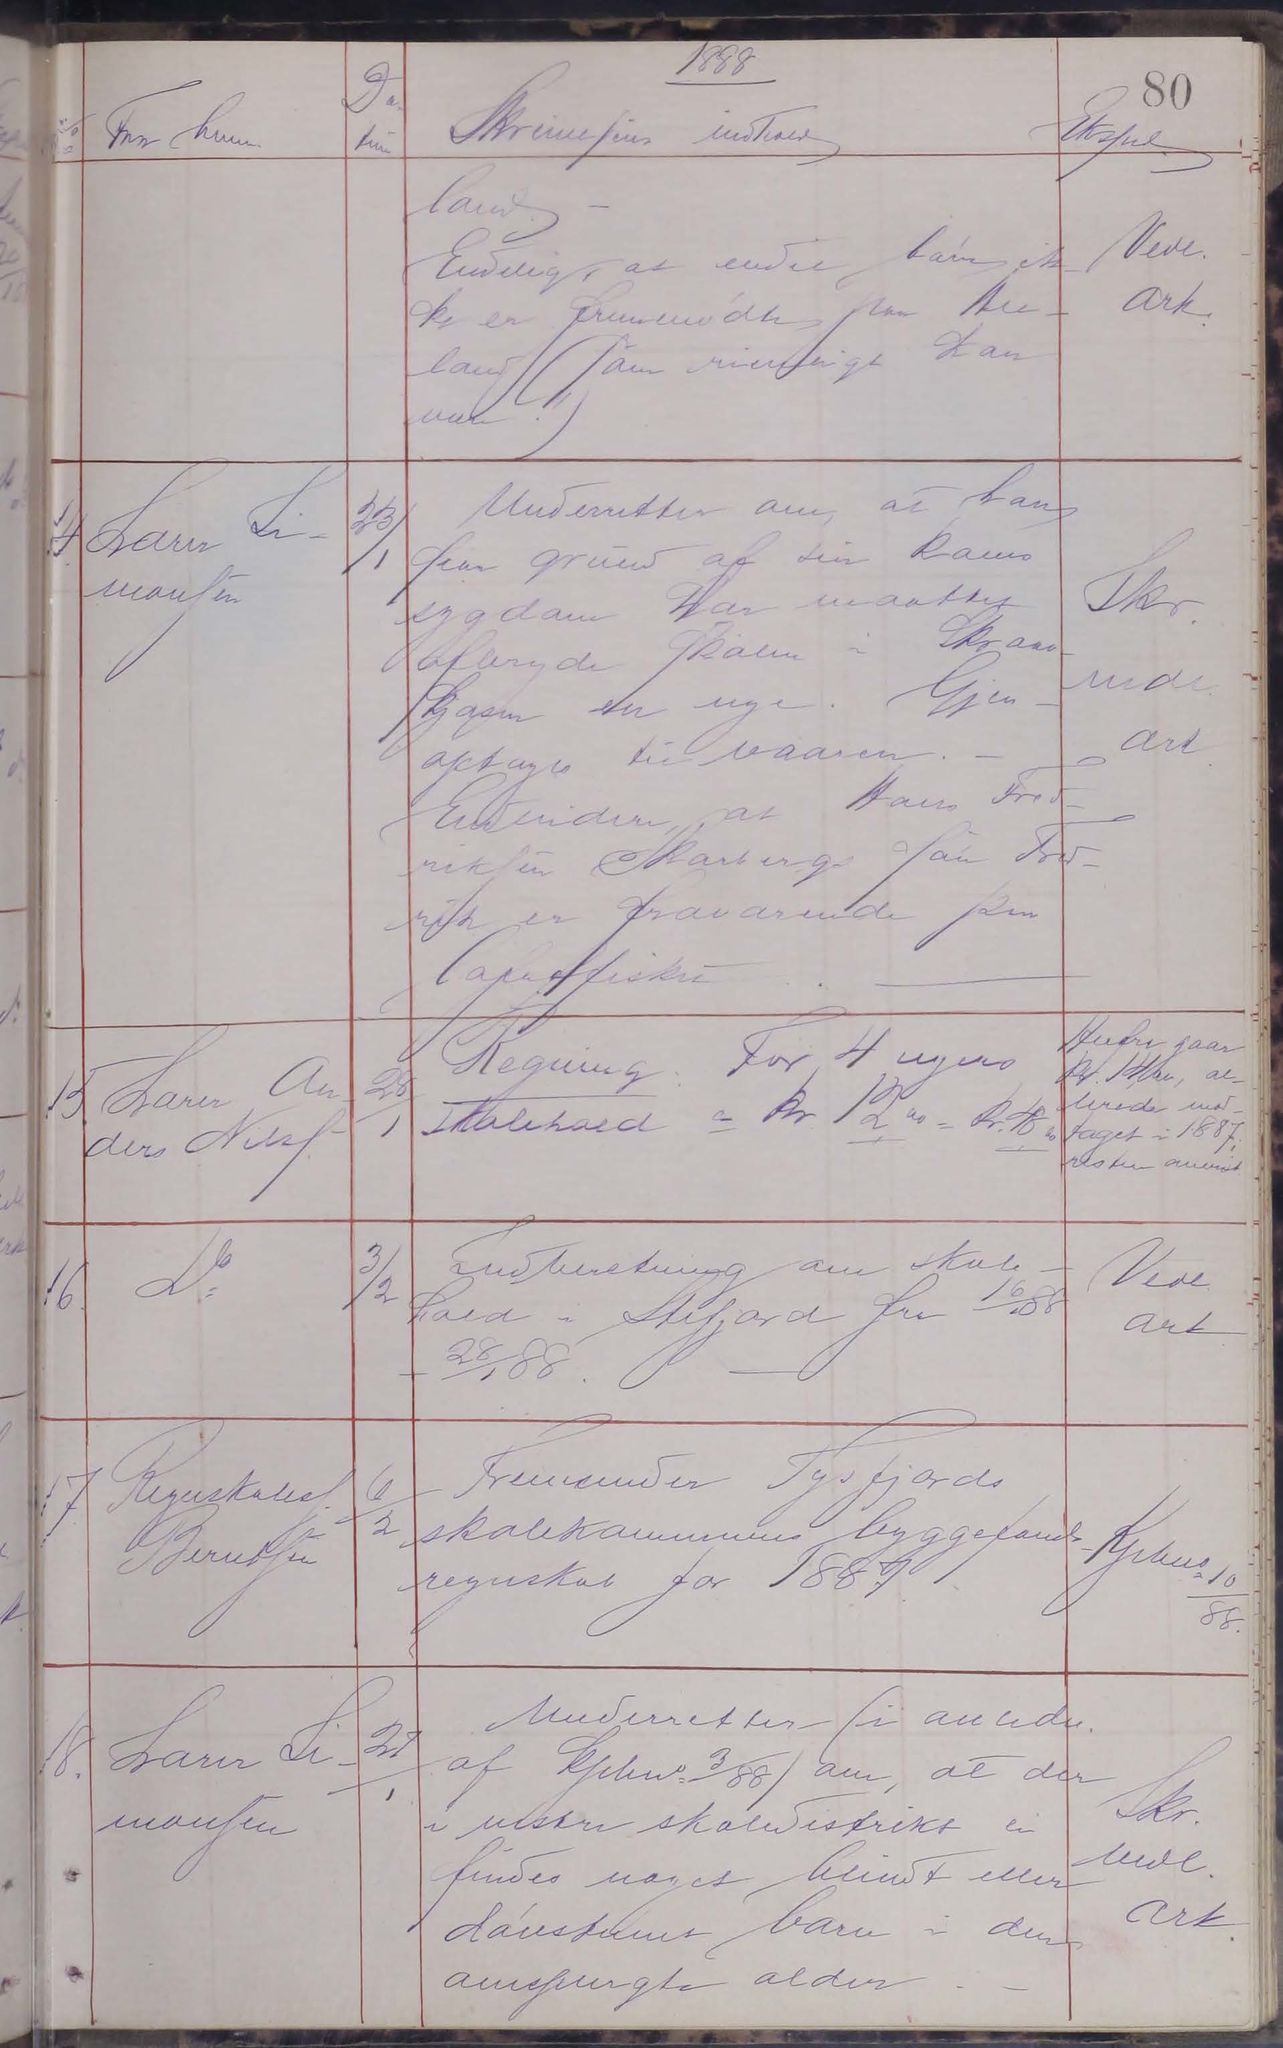 1888
80
Fra hvem
Da-
tum
Skrivelsens indhold
Eksped.
land. -
Endelig, at endel børn ik-
ke er fremmødte fra Hu-
land (Som rimeligt kan
være!)
Vedl.
ark.
14 Lærer Si-
monsen
23/1
Underretter om, at han
paa grund af sin kones
sygdom har maattet
afbryde skolen i Skraav-
kjosen en uge. Gjen-
optages til vaaren. -
Endvidere, at Hans Fred-
riksen Skarbergs søn Fred-
rik er fraværende paa
Lofotfisket. -
Skr.
vedl.
ark
15 Lærer An-
ders Nils.
28/1
Regning. For 4 ugers
skolehold à kr. 12 00 = kr. 48 00
Heraf gaar
kr. 14 00, al-
lerede mod-
taget i 1887,
resten anvist
16. Do
3/2
Indberetning om skole-
hold i Stefjord fra 16/1 88
- 28/1 88. -
Vedl.
ark
17 Regnskabsf.
Berntsen
6/2
Fremsender Tysfjords
skolekommunes byggefonds-
regnskab for 1887
Kpbno 10/88.
18. Lærer Si-
monsen
27/1
Underretter (i anledn.
af Kpbno 3/88) om, at der
i vestre skoledistrikt ei
findes noget blindt eller
døvstumt barn i den
omspurgte alder. -
Skr.
vedl.
ark.